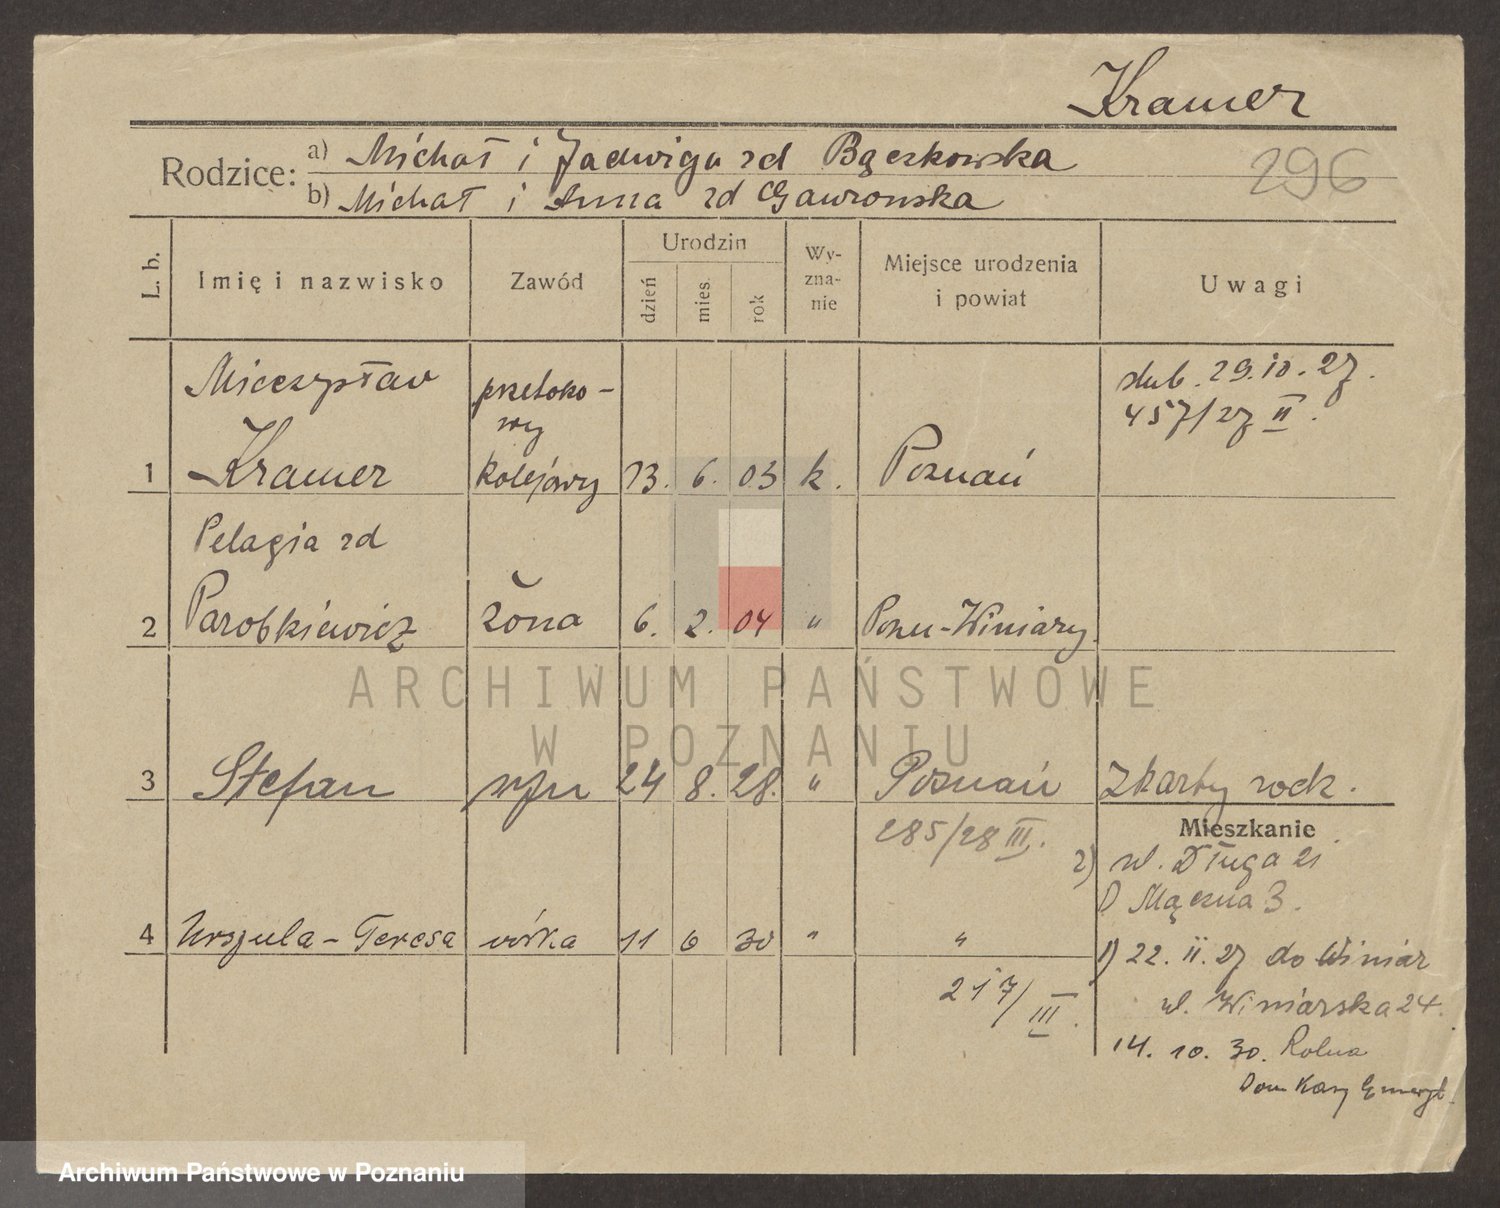 Kramer
Rodzice: a) Michał i Jadwiga zd Bączkowska
296
b) Michał i Anna zd Gawrońska
L. b.
Imię i nazwisko
Zawód
Urodzin
dzień
mies.
rok
Wy-
zna-
nie
Miejsce urodzenia
i powiat
Uwagi
Mieczysław
przetoko-
wy
ślub. 29.10.27.
457/27 II.
1 Kramer kolejowy 13. 6. 03 k. Poznań
Pelagia zd
2 Parobkiewicz żona 6. 2. 04 " Pozn-Winiary.
ARCHIWUM PAŃSTWOWE
W POZNANIU
3 Stefan syn 24 8. 28. " Poznań Z karty rodz.
285/28 III.
Mieszkanie
2) ul. Długa 21
Mączna 3.
4 Urszula-Teresa córka 11 6 30 " "
1) 22. II. 27 do Winiar
217/III.
ul. Winiarska 24.
14. 10. 30. Rolna
Dom Kasy Emeryt.
Archiwum Państwowe w Poznaniu